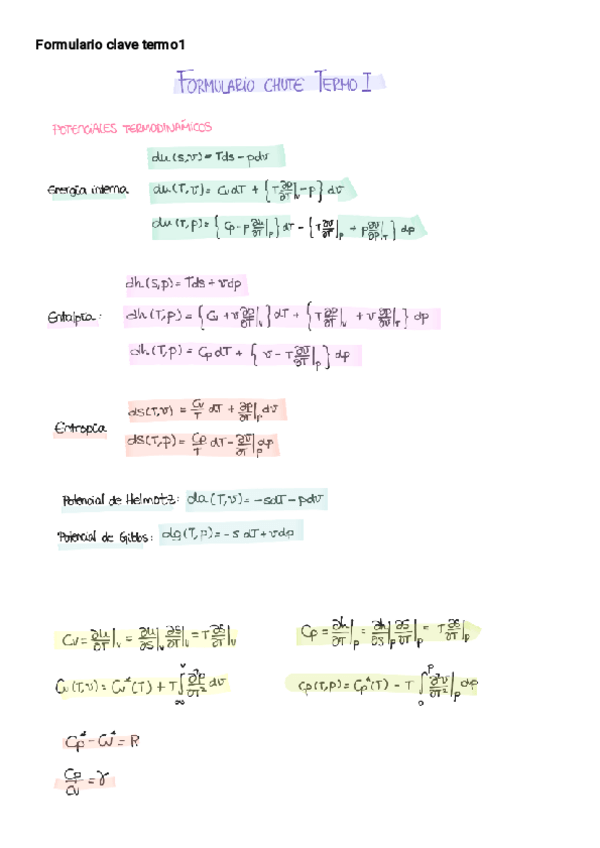 Formulario clave termo1
FORMULARIO CHUTE TERMO I
POTENCIALES TERMODINÁMICOS
du(s,v) = Tds - pdv
Energía interna du(T,v) = CvdT + {T ∂p/∂T|v - p} dv
du(T,p) = {Cp - p ∂v/∂T|p} dT - {T ∂v/∂T|p + p ∂v/∂p|T} dp
dh(s,p) = Tds + vdp
Entalpía: dh(T,p) = {Cv + v ∂p/∂T|v} dT + {T ∂p/∂T|v + v ∂p/∂v|T} dp
dh(T,p) = CpdT + {v - T ∂v/∂T|p} dp
ds(T,v) = Cv/T dT + ∂p/∂T|p dv
Entropía
ds(T,p) = Cp/T dT - ∂v/∂T|p dp
Potencial de Helmotz: da(T,v) = -sdT - pdv
Potencial de Gibbs: dg(T,p) = -s dT + vdp
Cv = ∂u/∂T|v = ∂u/∂s|v ∂s/∂T|v = T ∂s/∂T|v
Cp = ∂h/∂T|p = ∂h/∂s|p ∂s/∂T|p = T ∂s/∂T|p
Cv(T,v) = Cv*(T) + T ∫∞^v ∂²p/∂T² dv
Cp(T,p) = Cp*(T) - T ∫0^p ∂²v/∂T²|p dp
Cp* - Cv* = R
Cp/Cv = γ